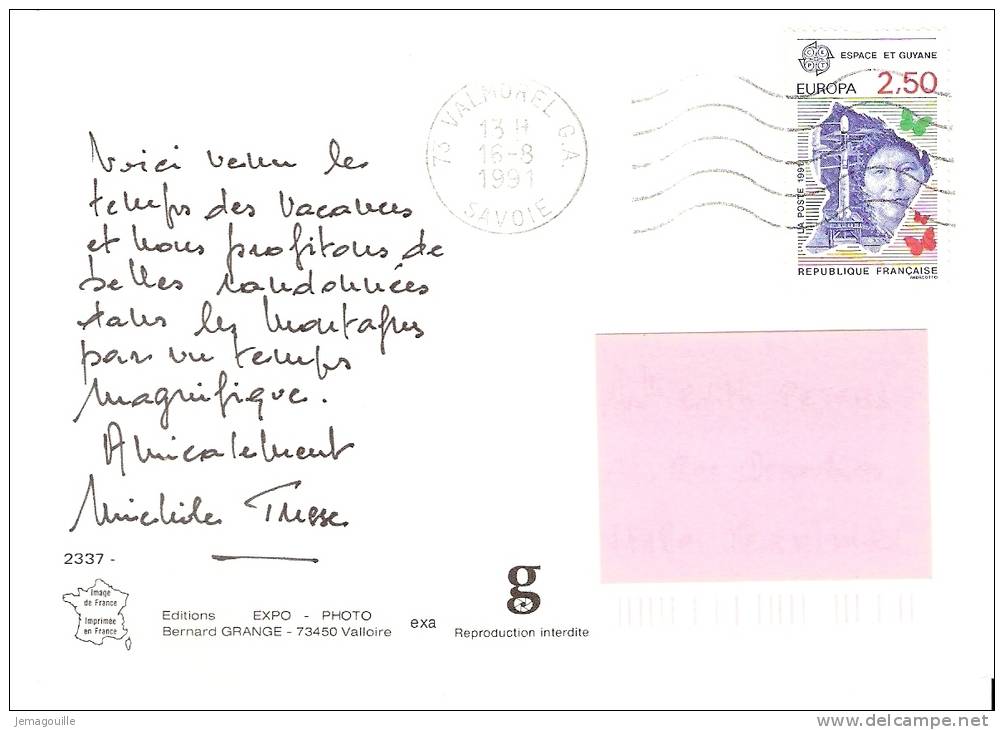 ESPACE ET GUYANE
EUROPA 2,50
LA POSTE 1991
REPUBLIQUE FRANÇAISE
73 VALMOREL C.A.
13 H
16-8
1991
SAVOIE
Voici venu les
temps des vacances
et nous profitons de
belles randonnées
dans les montagnes
par un temps
magnifique.
Amicalement
2337 -
Image
de France
Imprimée
en France
Editions EXPO - PHOTO
Bernard GRANGE - 73450 Valloire
exa
g
Reproduction interdite
Jemagouille
delcampe.net